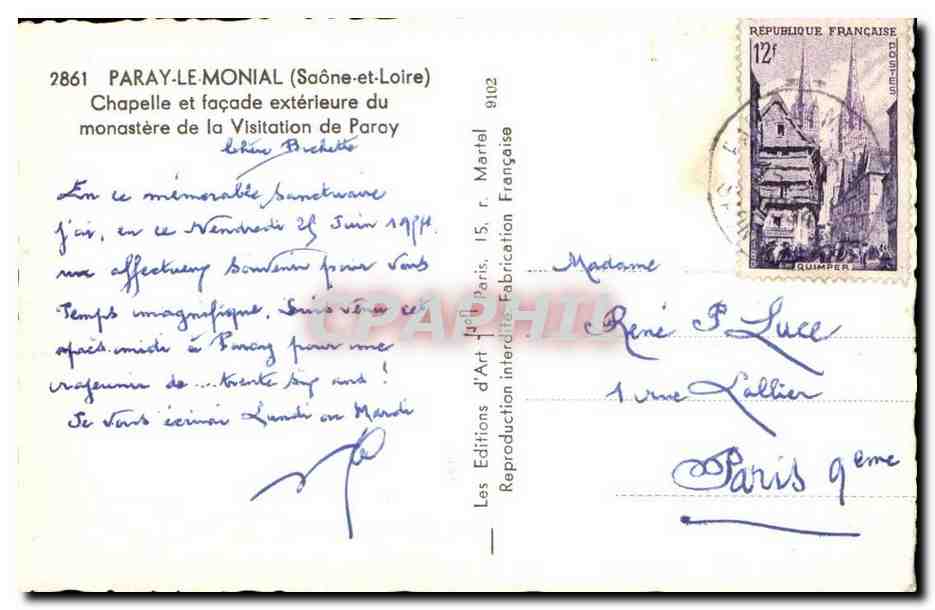 2861 PARAY-LE-MONIAL (Saône-et-Loire)
Chapelle et façade extérieure du
monastère de la Visitation de Paray
Bichette
En ce mémorable sanctuaire
j'ai, en ce Vendredi 25 Juin 1954
un affectueux souvenir pour vous
Temps magnifique. Suis venu cet
après-midi à Paray pour me
rajeunir de ... trente six ans !
Je vous écrirai Lundi ou Mardi
Les Editions d'Art Paris, 15, r. Martel 9102
Reproduction interdite Fabrication Française
CPAPHIL
RÉPUBLIQUE FRANÇAISE
12f
POSTES
QUIMPER
Madame
René P Luce
1 rue Lallier
Paris 9ème